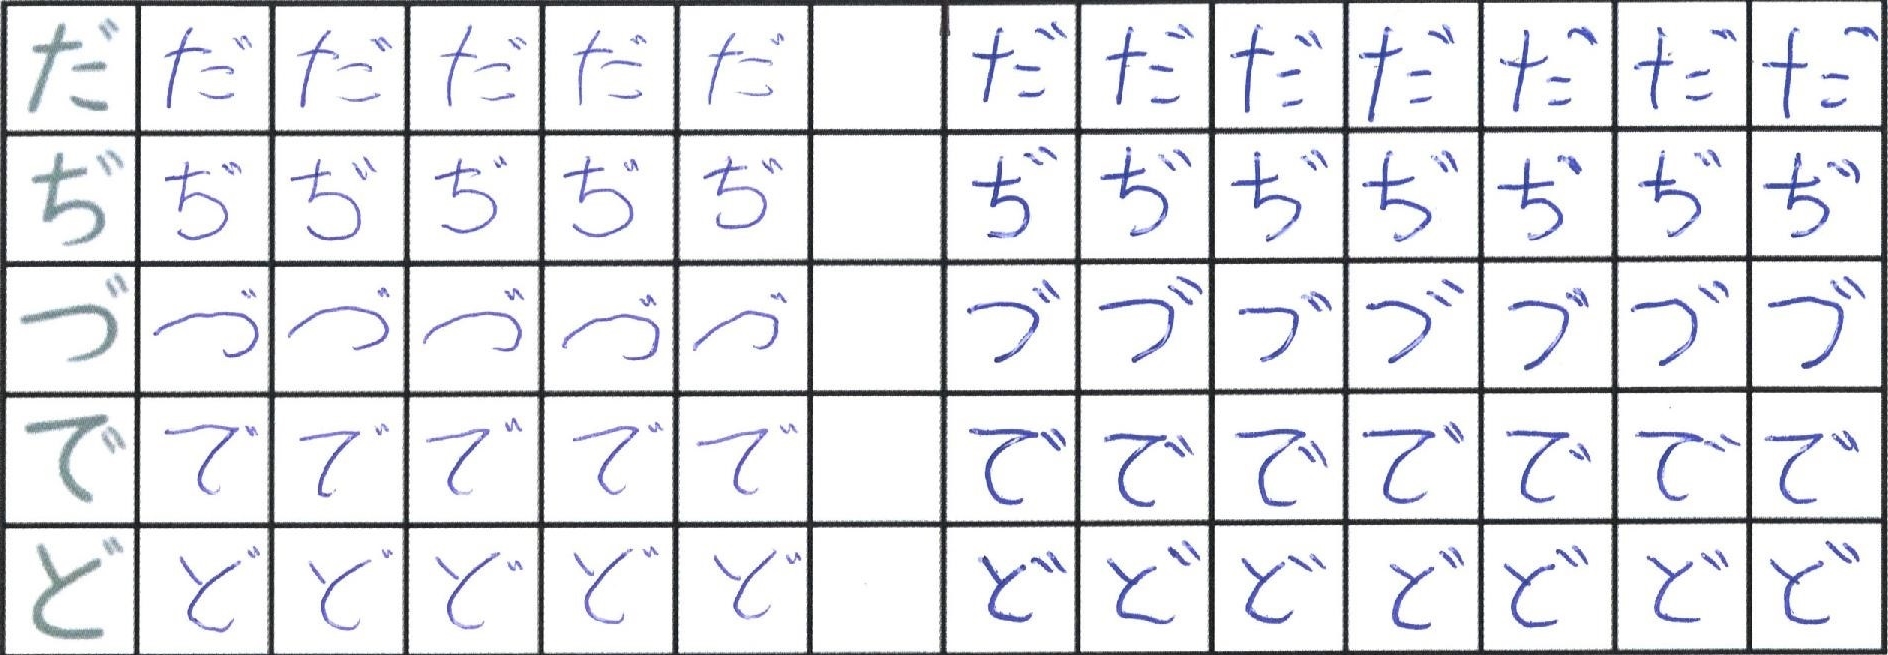 だ だ だ だ だ だ だ だ だ だ だ だ だ
ぢ ぢ ぢ ぢ ぢ ぢ ぢ ぢ ぢ ぢ ぢ ぢ ぢ
づ づ づ づ づ づ づ づ づ づ づ づ づ
で で で で で で で で で で で で で
ど ど ど ど ど ど ど ど ど ど ど ど ど